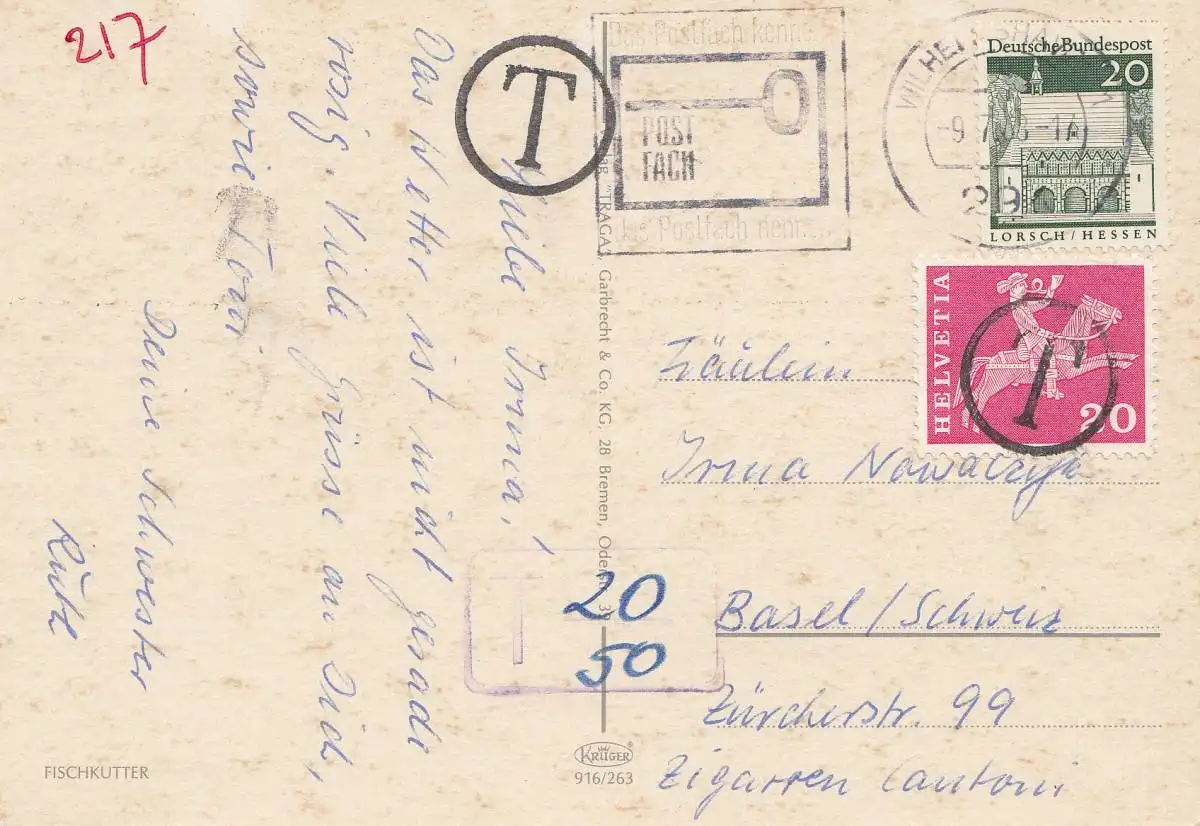 217
Liebe Irma,
Das Wetter ist nicht gerade
rosig. Viele Grüsse an Dich,
sowie Toni
Deine Schwester
Ruth
FISCHKUTTER
T
Das Postfach kenne
POST
FACH
das Postfach nennen
"TRAGA", Garbrecht & Co. KG, 28 Bremen, Oderstr.
WILHELMSHAVEN
-9.7. -1
29
Deutsche Bundespost
20
LORSCH/HESSEN
HELVETIA
20
T
Fräulein
Irma
Basel/Schweiz
Zürcherstr. 99
Zigarren Cantoni
T
20
50
KRÜGER
916/263